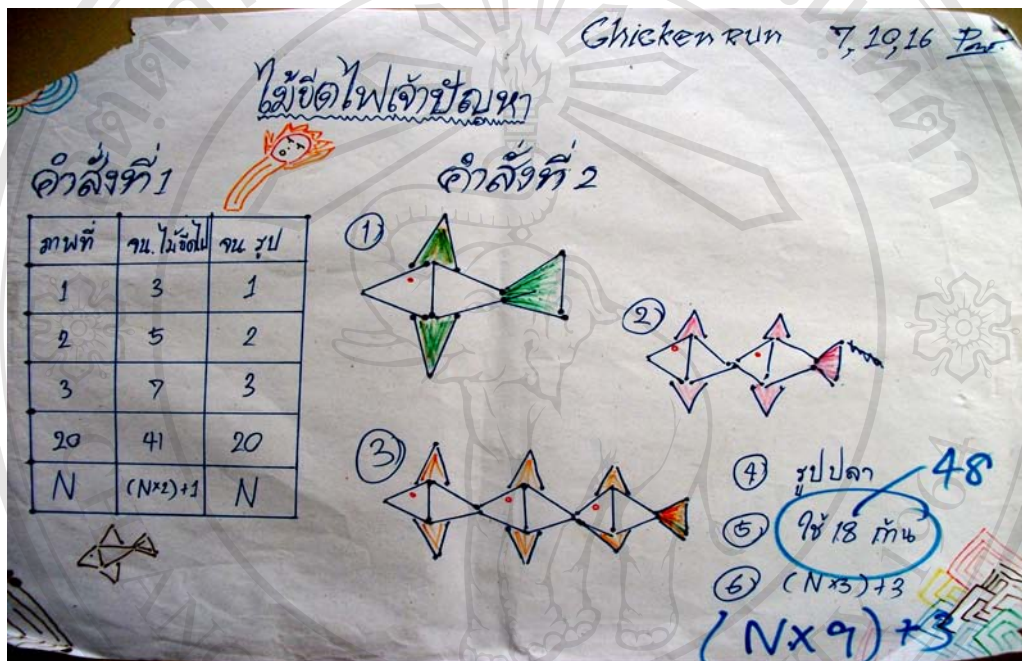 Chicken Run 7,10,16
ไม้ขีดไฟเจ้าปัญหา
คำสั่งที่ 1
ภาพที่ จน.ไม้ขีดไฟ จน. รูป
1 3 1
2 5 2
3 7 3
20 41 20
N (N×2)+1 N
คำสั่งที่ 2
1
2
3
4 รูปปลา 48
5 ใช้ 18 ก้าน
6 (N×3)+3
(N×9)+3